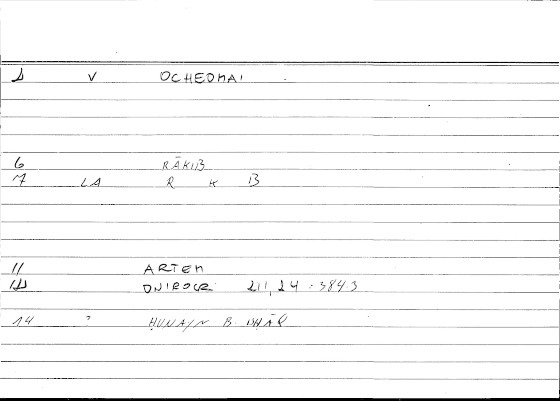 V OCHEDMAI
6 RĀKIB
7 LA R K B
11 ARTEM
ONIROCR 211,24 : 384.3
14 ? HUNAYN B